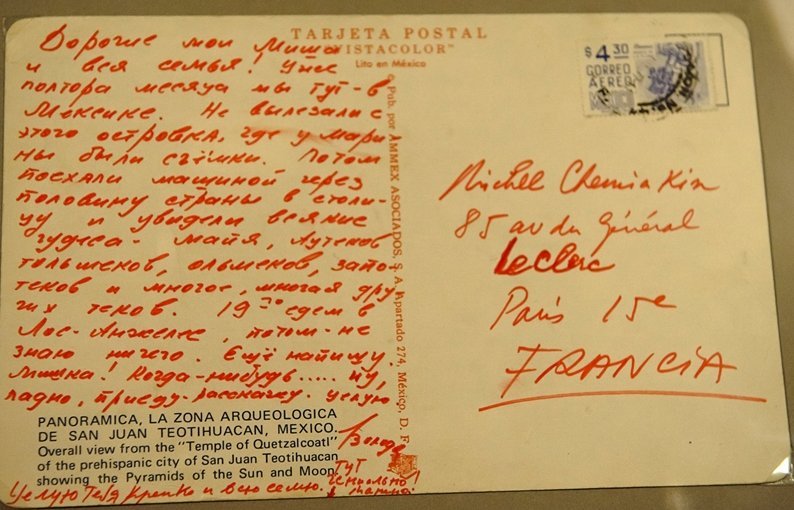 TARJETA POSTAL
"VISTACOLOR"
Lito en México
Дорогие мои Миша
и вся семья! Уже
полтора месяца мы тут-в
Мексике. Не вылезали с
этого островка, где у мари
ны были съёмки. Потом
поехали машиной через
половину страны в столи-
цу и увидели всякие
чудеса- майя, Ацтеков
тольтеков, ольмеков, запо-
теков и многое, многая дру
гих теков. 19го едем в
Лос-Анжелес, потом-не
знаю ничего. Ещё напишу.
Мишка! Когда-нибудь..... ну,
ладно, приеду-расскажу. целую
/Володя
PANORAMICA, LA ZONA ARQUEOLOGICA
DE SAN JUAN TEOTIHUACAN, MEXICO.
Overall view from the "Temple of Quetzalcoatl"
of the prehispanic city of San Juan Teotihuacan
showing the Pyramids of the Sun and Moon.
Целую Тебя крепко и всю семью.
Тут
гениально!
Марина.
© Pub. por AMMEX ASOCIADOS, S. A. Apartado 274, México, D. F.
$ 4.30
CORREO
AEREO
Michel Chemiakin
85 av du Général
Leclerc
Paris 15e
FRANCIA